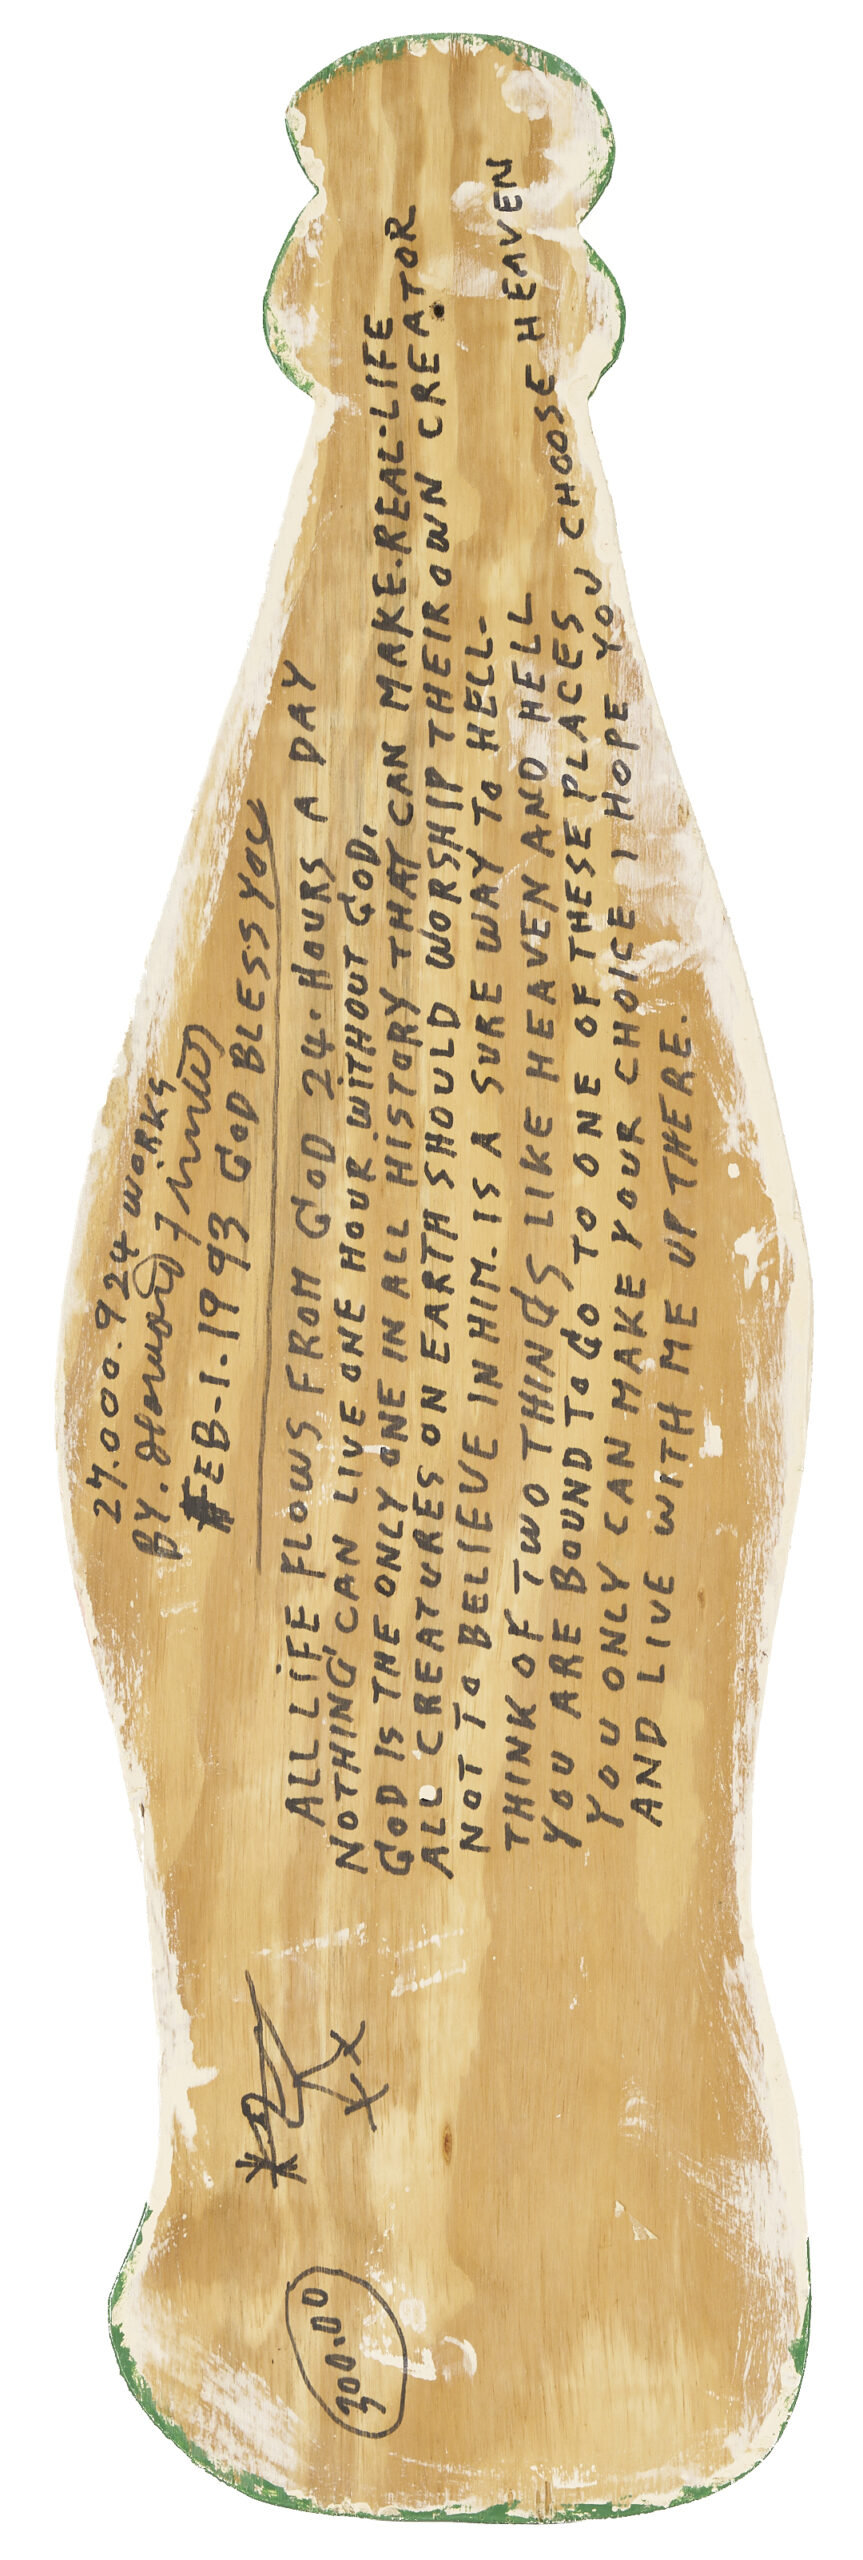 27.000.924 WORKS
BY. HOWARD FINSTER
FEB-1.1993 GOD BLESS YOU
ALL LIFE FLOWS FROM GOD 24. HOURS A DAY
NOTHING CAN LIVE ONE HOUR WITHOUT GOD.
GOD IS THE ONLY ONE IN ALL HISTORY THAT CAN MAKE.REAL-LIFE
ALL CREATURES ON EARTH SHOULD WORSHIP THEIR OWN CREATOR
NOT TO BELIEVE IN HIM. IS A SURE WAY TO HELL-
THINK OF TWO THINGS LIKE HEAVEN AND HELL
YOU ARE BOUND TO GO TO ONE OF THESE PLACES
YOU ONLY CAN MAKE YOUR CHOICE I HOPE YOU CHOOSE HEAVEN
AND LIVE WITH ME UP THERE.
300.00